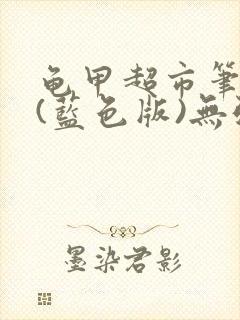 龟甲超市筆
(藍色版)無
墨染君影